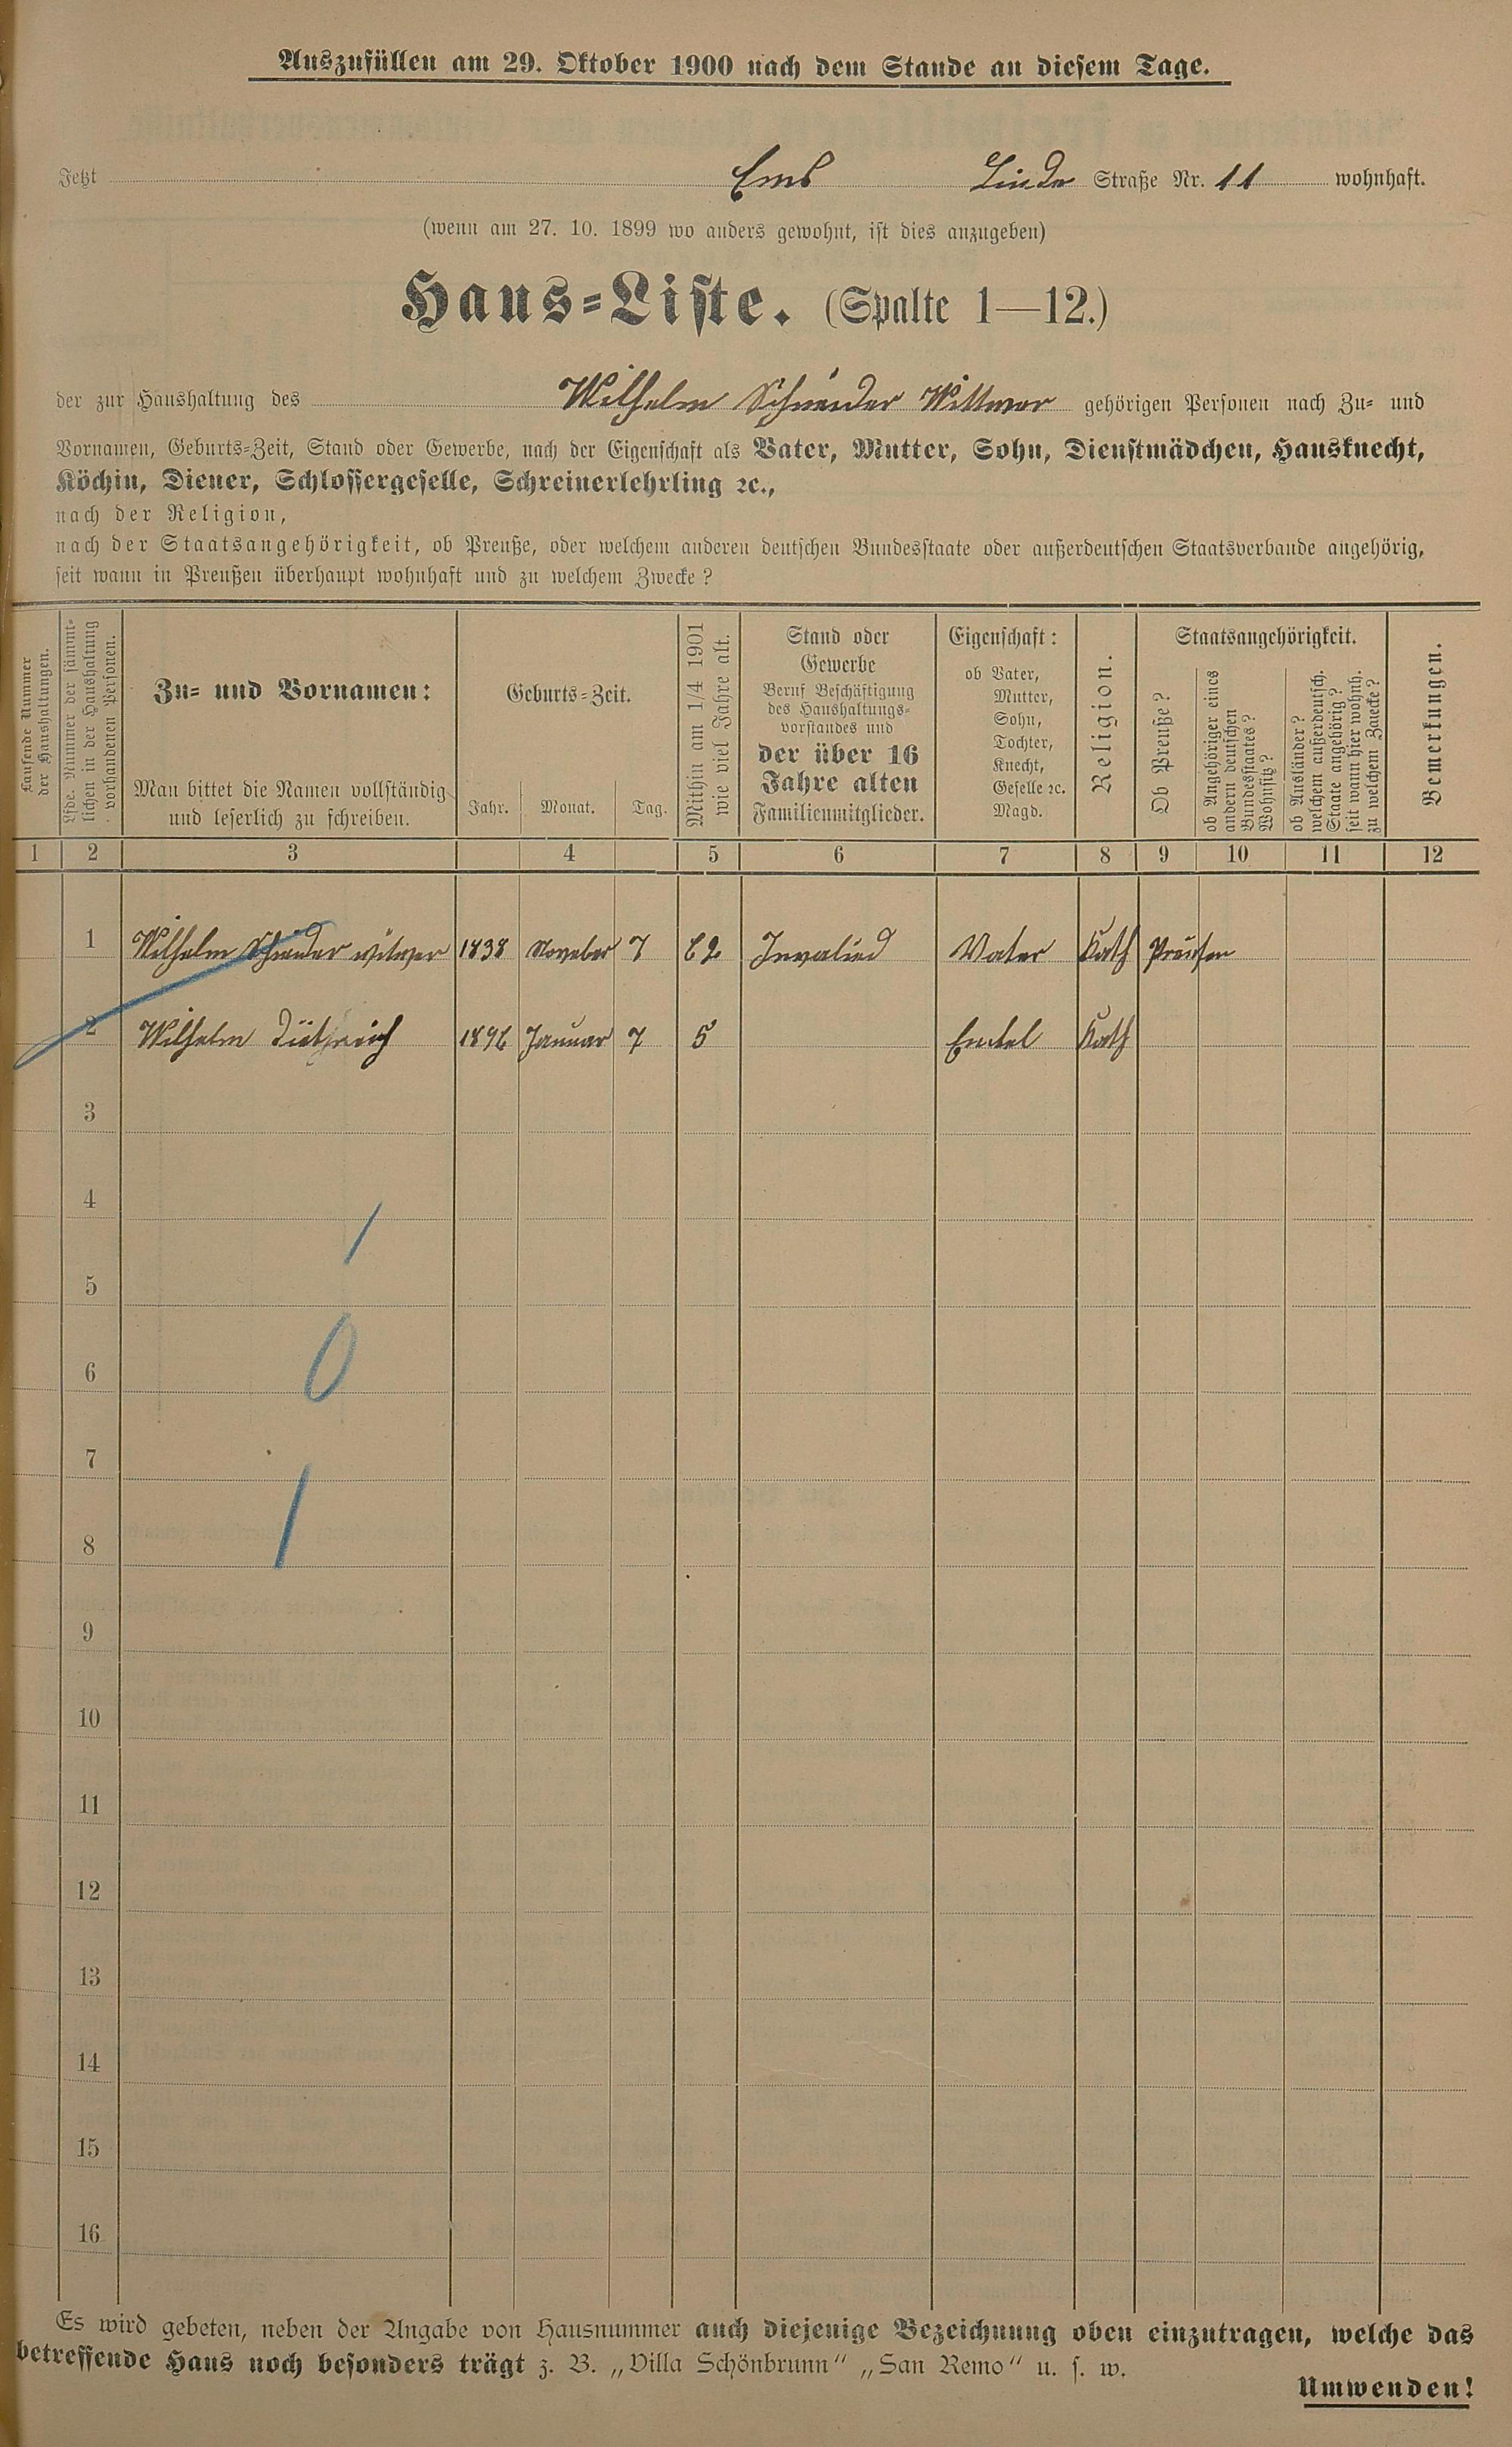 Auszufüllen am 29. Oktober 1900 nach dem Stande an diesem Tage.
Jetzt Ems Linde Straße Nr. 11 wohnhaft.
(wenn am 27. 10. 1899 wo anders gewohnt, ist dies anzugeben)
Haus-Liste. (Spalte 1—12.)
der zur Haushaltung des Wilhelm Schneider Wittwer gehörigen Personen nach Zu- und
Vornamen, Geburts-Zeit, Stand oder Gewerbe, nach der Eigenschaft als Vater, Mutter, Sohn, Dienstmädchen, Hausknecht,
Köchin, Diener, Schlossergeselle, Schreinerlehrling ꝛc.,
nach der Religion,
nach der Staatsangehörigkeit, ob Preuße, oder welchem anderen deutschen Bundesstaate oder außerdeutschen Staatsverbande angehörig,
seit wann in Preußen überhaupt wohnhaft und zu welchem Zwecke?
Laufende Nummer
der Haushaltungen.
Lfde. Nummer der sämmt-
lichen in der Haushaltung
vorhandenen Personen.
Zu- und Vornamen:
Man bittet die Namen vollständig
und leserlich zu schreiben.
Geburts-Zeit.
Jahr. Monat. Tag.
Mithin am 1/4 1901
wie viel Jahre alt.
Stand oder
Gewerbe
Beruf Beschäftigung
des Haushaltungs-
vorstandes und
der über 16
Jahre alten
Familienmitglieder.
Eigenschaft:
ob Vater,
Mutter,
Sohn,
Tochter,
Knecht,
Geselle ꝛc.
Magd.
Religion.
Staatsangehörigkeit.
Ob Preuße?
ob Angehöriger eines
andern deutschen
Bundesstaates?
Wohnsitz?
ob Ausländer?
welchem außerdeutsch.
Staate angehörig?
seit wann hier wohnh.
zu welchem Zwecke?
Bemerkungen.
1 2 3 4 5 6 7 8 9 10 11 12
1 Wilhelm Schneider witwer 1838 November 7 62 Invalied Vater Kath Preusen
2 Wilhelm 1896 Januar 7 5 Enkel Kath
3
4
1
5
6
0
7
8
1
9
10
11
12
13
14
15
16
Es wird gebeten, neben der Angabe von Hausnummer auch diejenige Bezeichnung oben einzutragen, welche das
betreffende Haus noch besonders trägt z. B. „Villa Schönbrunn“ „San Remo“ u. s. w.
Umwenden!